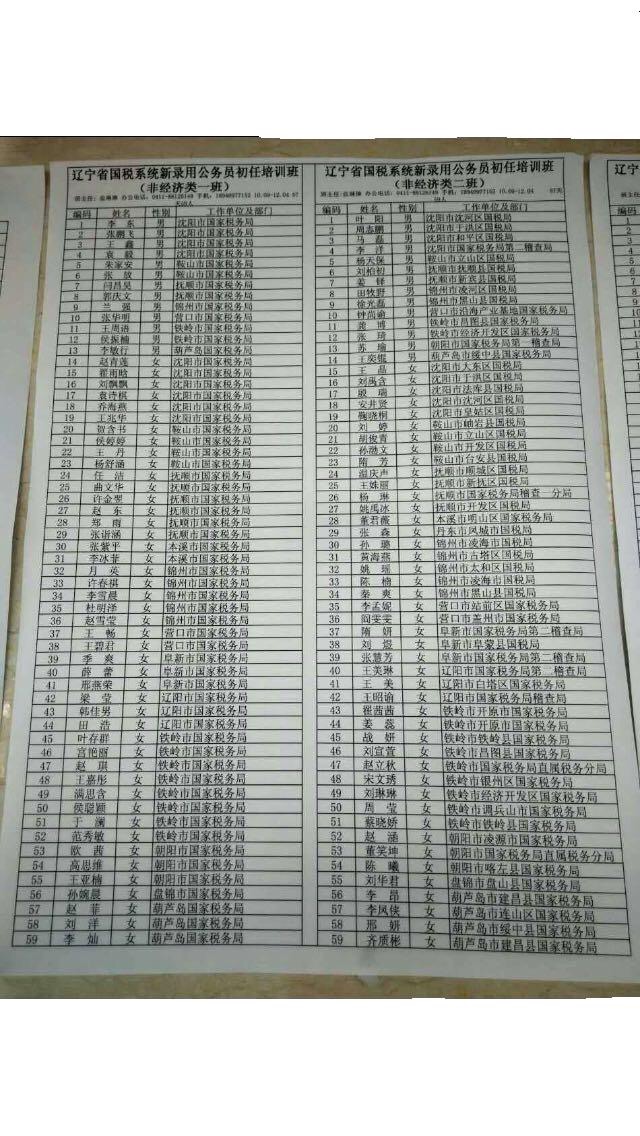 辽宁省国税系统新录用公务员初任培训班
(非经济类一班)
编码 姓名 性别 工作单位及部门
1 李东 男 沈阳市国家税务局
2 张鹏飞 男 沈阳市国家税务局
3 王鑫 男 沈阳市国家税务局
4 袁毅 男 沈阳市国家税务局
5 朱家安 男 鞍山市国家税务局
6 张放 男 鞍山市国家税务局
7 闫昌昊 男 抚顺市国家税务局
8 郭庆文 男 抚顺市国家税务局
9 兰强 男 锦州市国家税务局
10 张华明 男 营口市国家税务局
11 王周语 男 铁岭市国家税务局
12 侯振楠 男 铁岭市国家税务局
13 李敏行 男 葫芦岛国家税务局
14 赵青莲 女 沈阳市国家税务局
15 翟雨晗 女 沈阳市国家税务局
16 刘飘飘 女 沈阳市国家税务局
17 袁诗棋 女 沈阳市国家税务局
18 乔海燕 女 沈阳市国家税务局
19 王北华 女 沈阳市国家税务局
20 贺含书 女 鞍山市国家税务局
21 侯婷婷 女 鞍山市国家税务局
22 王丹 女 鞍山市国家税务局
23 杨舒涵 女 鞍山市国家税务局
24 任洁 女 抚顺市国家税务局
25 曲文华 女 抚顺市国家税务局
26 许金翌 女 抚顺市国家税务局
27 赵东 女 抚顺市国家税务局
28 郑雨 女 抚顺市国家税务局
29 张诣涵 女 抚顺市国家税务局
30 张紫平 女 本溪市国家税务局
31 李冰菲 女 本溪市国家税务局
32 月英 女 锦州市国家税务局
33 许春祺 女 锦州市国家税务局
34 李雪晨 女 锦州市国家税务局
35 杜明泽 女 锦州市国家税务局
36 赵雪莹 女 锦州市国家税务局
37 王畅 女 营口市国家税务局
38 王碧君 女 营口市国家税务局
39 季爽 女 阜新市国家税务局
40 薛蕾 女 阜新市国家税务局
41 邢燕荣 女 阜新市国家税务局
42 梁莹 女 辽阳市国家税务局
43 韩佳男 女 辽阳市国家税务局
44 田浩 女 辽阳市国家税务局
45 叶存群 女 铁岭市国家税务局
46 宫艳丽 女 铁岭市国家税务局
47 赵琪 女 铁岭市国家税务局
48 王嘉彤 女 铁岭市国家税务局
49 满思含 女 铁岭市国家税务局
50 侯聪颖 女 铁岭市国家税务局
51 于澜 女 铁岭市国家税务局
52 范秀敏 女 铁岭市国家税务局
53 欧茜 女 朝阳市国家税务局
54 高思维 女 朝阳市国家税务局
55 王亚楠 女 朝阳市国家税务局
56 孙婉晨 女 盘锦市国家税务局
57 赵菲 女 葫芦岛国家税务局
58 刘洋 女 葫芦岛国家税务局
59 李灿 女 葫芦岛国家税务局
辽宁省国税系统新录用公务员初任培训班
(非经济类二班)
编码 姓名 性别 工作单位及部门
1 叶阳 男 沈阳市沈河区国税局
2 周志鹏 男 沈阳市于洪区国税局
3 马磊 男 沈阳市和平区国税局
4 李洋 男 沈阳市国家税务局第二稽查局
5 杨天保 男 鞍山市立山区国税局
6 刘柏初 男 抚顺市抚顺县国税局
7 姜铎 男 抚顺市新宾县国税局
8 田牧野 男 锦州市凌河区国税局
9 徐光磊 男 锦州市黑山县国税局
10 钟尚谕 男 营口市沿海产业基地国家税务局
11 龚博 男 铁岭市昌图县国家税务局
12 张琦 男 铁岭市经济开发区国税局
13 苏瑜 男 朝阳市国家税务局第一稽查局
14 王奕锟 男 葫芦岛市绥中县国家税务局
15 王晶 女 沈阳市大东区国税局
16 刘禹含 女 沈阳市于洪区国税局
17 殷瑞 女 沈阳市法库县国税局
18 安井贤 女 沈阳市沈河区国税局
19 鞠晓桐 女 沈阳市皇姑区国税局
20 刘婷 女 鞍山市岫岩县国税局
21 胡俊青 女 鞍山市立山区国税局
22 孙勘文 女 鞍山市开发区国税局
23 隋芳 女 鞍山市台安县国税局
24 温庆声 女 抚顺市顺城区国税局
25 王姝丽 女 抚顺市新抚区国税局
26 杨琳 女 抚顺市国家税务局稽查 分局
27 姚禹冰 女 抚顺市开发区国税局
28 董君薇 女 本溪市明山区国家税务局
29 张森 女 丹东市凤城市国税局
30 孙璐 女 锦州市凌海市国税局
31 黄海燕 女 锦州市古塔区国税局
32 姚瑶 女 锦州市太和区国税局
33 陈楠 女 锦州市凌海市国税局
34 秦爽 女 锦州市黑山县国税局
35 李孟妮 女 营口市站前区国家税务局
36 阎雯雯 女 营口市盖州市国家税务局
37 隋妍 女 阜新市国家税务局第二稽查局
38 刘煜 女 阜新市阜蒙县国税局
39 张慧芳 女 阜新市国家税务局第二稽查局
40 王美琳 女 辽阳市国家税务局第二稽查局
41 王美 女 辽阳市白塔区国家税务局
42 王昭谕 女 辽阳市国家税务局稽查局
43 翟茜茜 女 铁岭市开原市国家税务局
44 姜蕊 女 铁岭市开原市国家税务局
45 战妍 女 铁岭市铁岭县国家税务局
46 刘宣萱 女 铁岭市昌图县国家税务局
47 赵立秋 女 铁岭市国家税务局直属税务分局
48 宋文琇 女 铁岭市银州区国家税务局
49 刘琳琳 女 铁岭市经济开发区国家税务局
50 周莹 女 铁岭市调兵山市国家税务局
51 蔡晓娇 女 铁岭市铁岭县国家税务局
52 赵涵 女 朝阳市凌源市国家税务局
53 董笑坤 女 朝阳市国家税务局直属税务分局
54 陈曦 女 朝阳市喀左县国家税务局
55 刘华君 女 盘锦市盘山县国家税务局
56 李昂 女 葫芦岛市建昌县国家税务局
57 李凤侠 女 葫芦岛市连山区国家税务局
58 邢妍 女 葫芦岛市绥中县国家税务局
59 齐质彬 女 葫芦岛市建昌县国家税务局